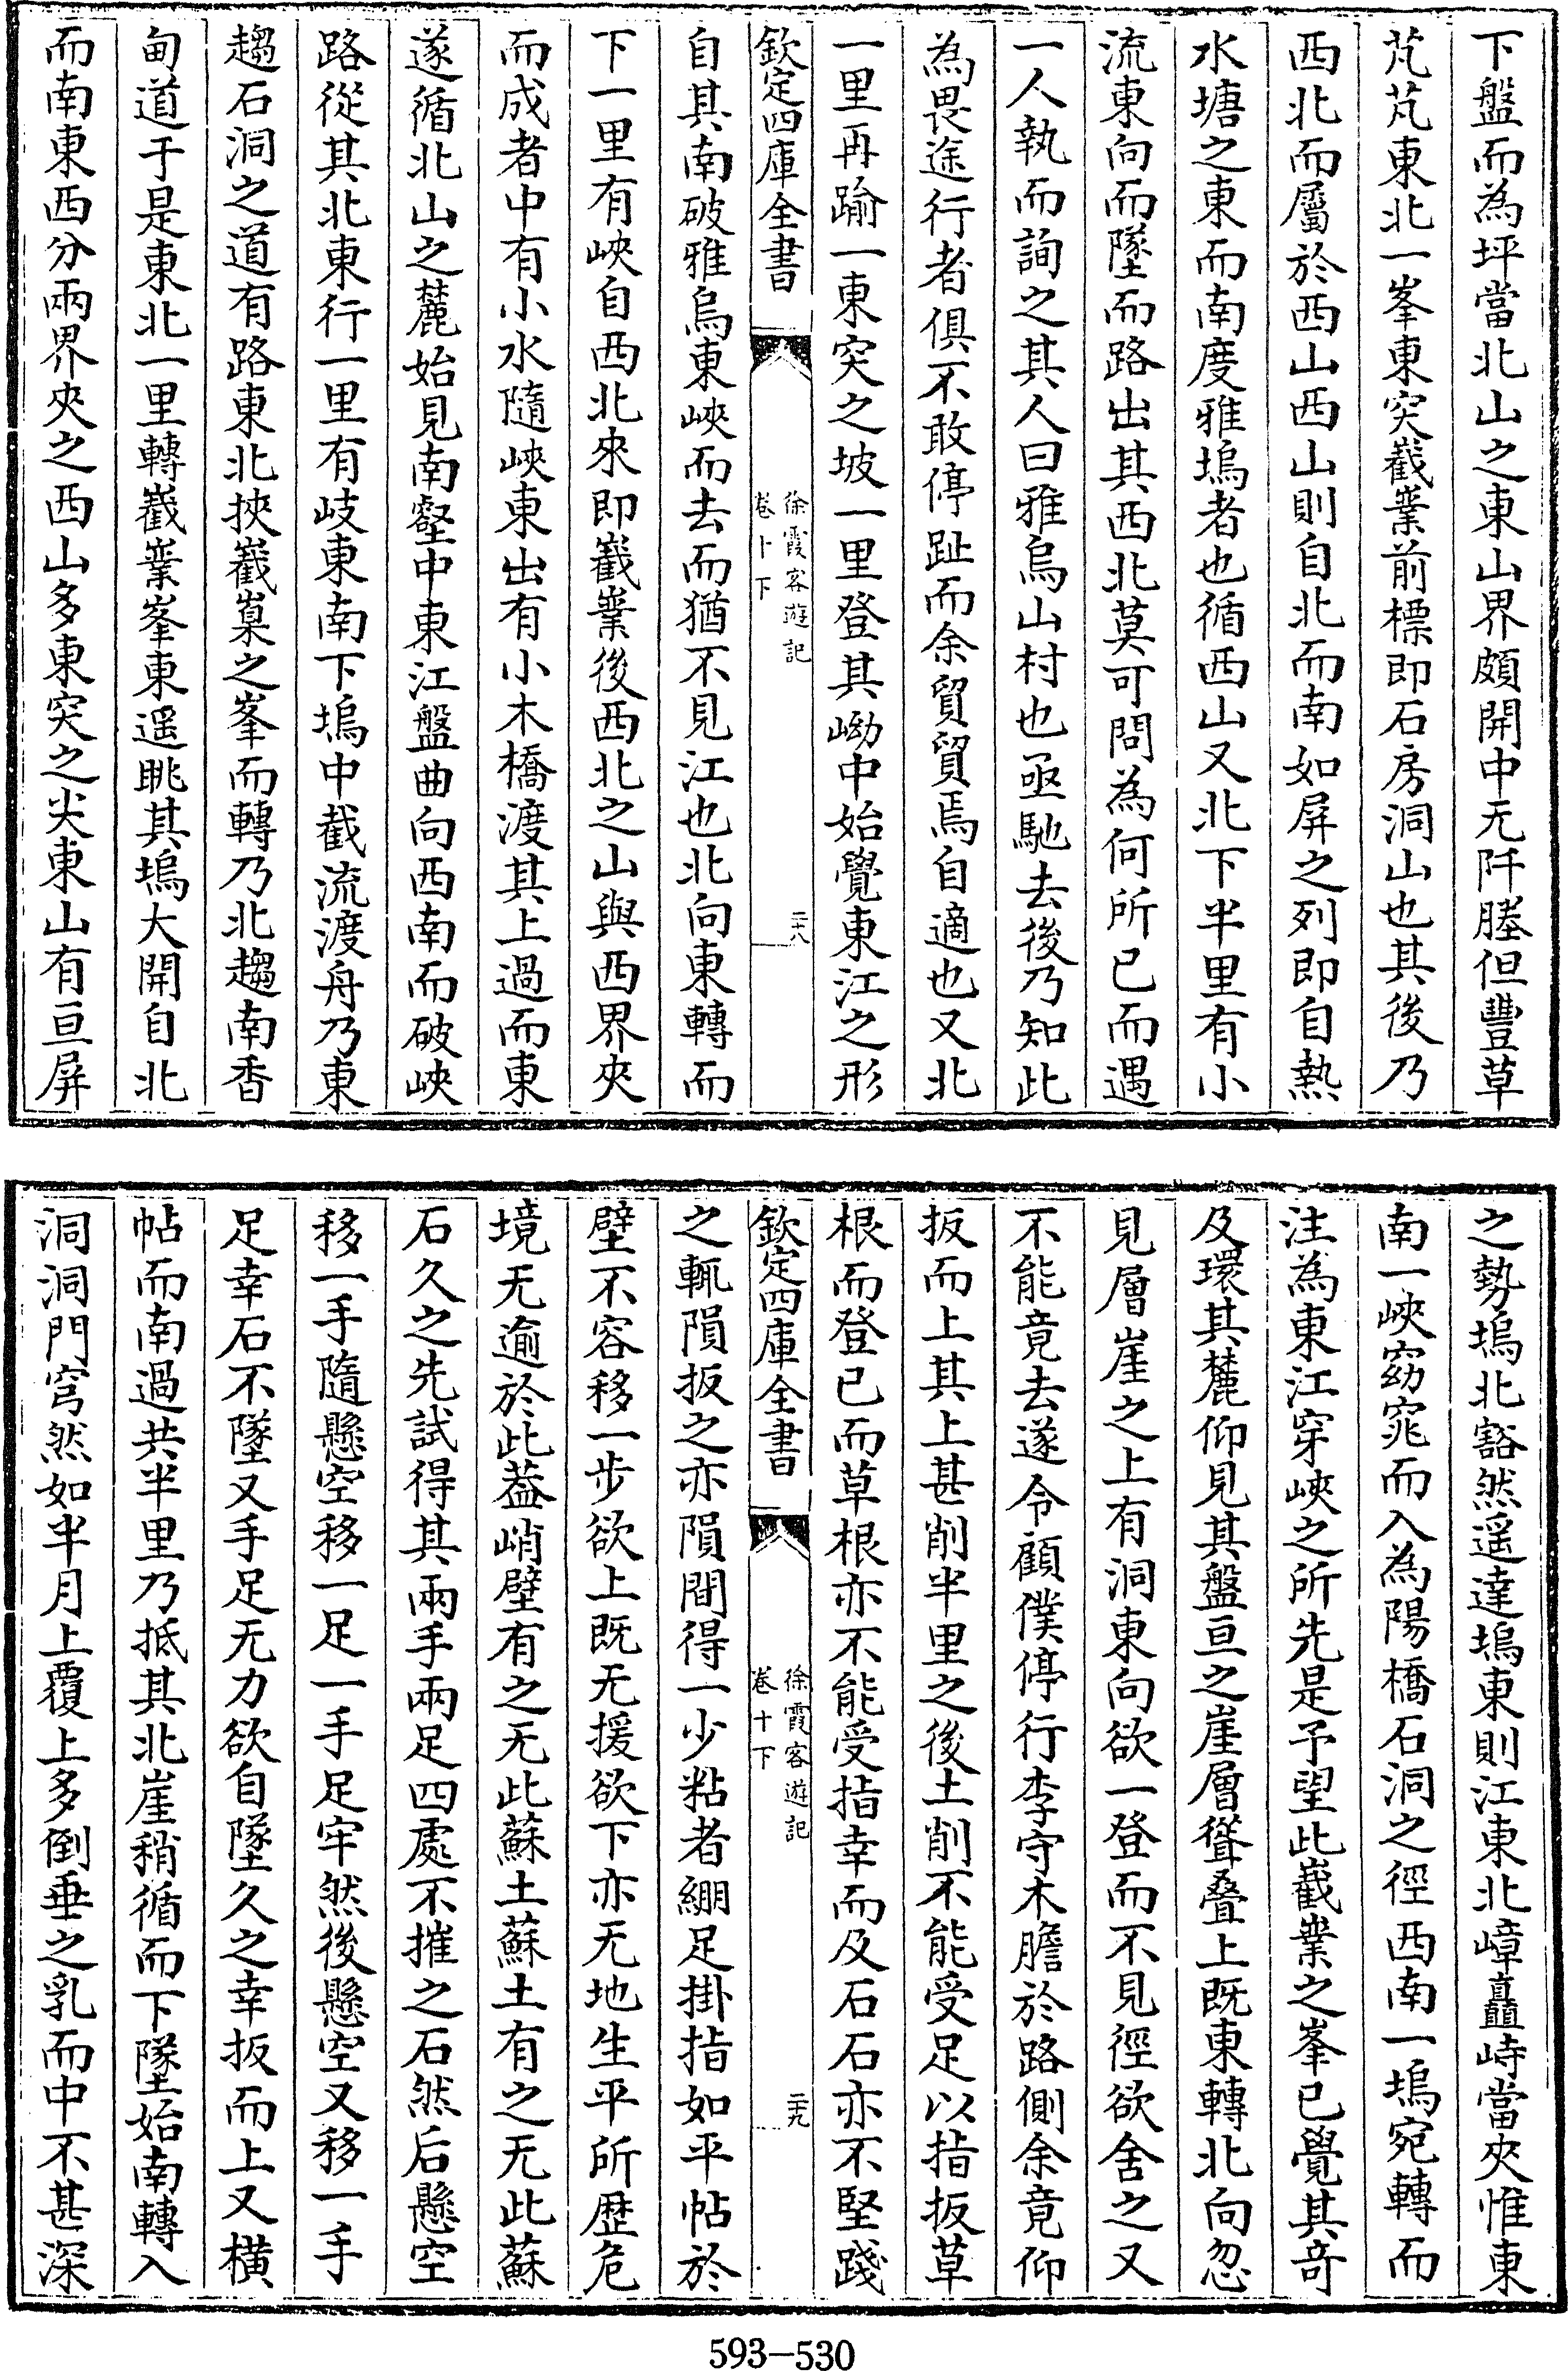 下盤而為坪當北山之東山界頗開中无阡塍但豐草
芃芃東北一峯東突嶻嶪前標即石房洞山也其後乃
西北而屬於西山西山則自北而南如屏之列即自熱
水塘之東而南度雅塢者也循西山又北下半里有小
流東向而墜而路出其西北莫可問為何所已而遇
一人執而詢之其人曰雅烏山村也亟馳去後乃知此
為畏途行者俱不敢停趾而余貿貿焉自適也又北
一里再踰一東突之坡一里登其坳中始覺東江之形
欽定四庫全書
徐霞客遊記
卷十下
二十八
自其南破雅烏東峽而去而猶不見江也北向東轉而
下一里有峽自西北來即嶻嶪後西北之山與西界夾
而成者中有小水隨峽東出有小木橋渡其上過而東
遂循北山之麓始見南壑中東江盤曲向西南而破峽
路從其北東行一里有岐東南下塢中截流渡舟乃東
趨石洞之道有路東北挾嶻嵲之峯而轉乃北趨南香
甸道于是東北一里轉嶻嶪峯東遥眺其塢大開自北
而南東西分兩界夾之西山多東突之尖東山有亘屏
之勢塢北豁然遥達塢東則江東北嶂矗峙當夾惟東
南一峽窈窕而入為陽橋石洞之徑西南一塢宛轉而
注為東江穿峽之所先是予望此嶻嶪之峯已覺其奇
及環其麓仰見其盤亘之崖層聳叠上既東轉北向忽
見層崖之上有洞東向欲一登而不見徑欲舍之又
不能竟去遂令顧僕停行李守木膽於路側余竟仰
扳而上其上甚削半里之後土削不能受足以指扳草
根而登已而草根亦不能受指幸而及石石亦不堅踐
欽定四庫全書
徐霞客遊記
卷十下
二十九
之輒隕扳之亦隕間得一少粘者綳足掛指如平帖於
壁不容移一步欲上既无援欲下亦无地生平所歷危
境无逾於此葢峭壁有之无此蘇土蘇土有之无此蘇
石久之先試得其兩手兩足四處不摧之石然后懸空
移一手隨懸空移一足一手足牢然後懸空又移一手
足幸石不墜又手足无力欲自墜久之幸扳而上又橫
帖而南過共半里乃抵其北崖稍循而下墜始南轉入
洞洞門穹然如半月上覆上多倒垂之乳而中不甚深
593-530